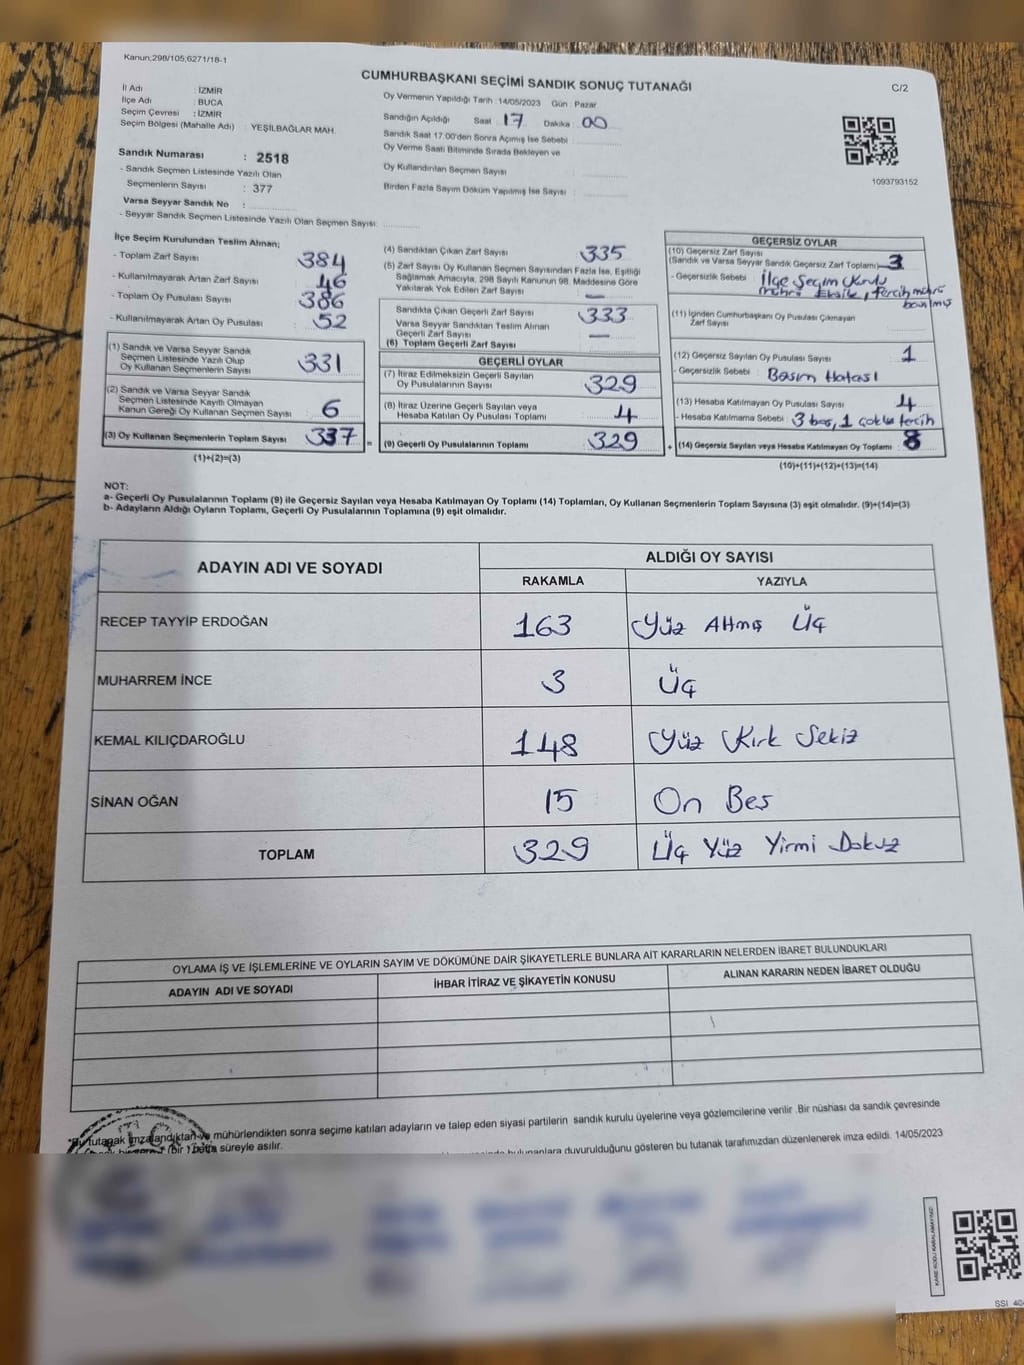 Kanun;298/105;6271/18-1
CUMHURBAŞKANI SEÇİMİ SANDIK SONUÇ TUTANAĞI
C/2
İl Adı : İZMİR
İlçe Adı : BUCA
Seçim Çevresi : İZMİR
Seçim Bölgesi (Mahalle Adı) : YEŞİLBAĞLAR MAH.
Sandık Numarası : 2518
- Sandık Seçmen Listesinde Yazılı Olan
Seçmenlerin Sayısı : 377
Varsa Seyyar Sandık No :
- Seyyar Sandık Seçmen Listesinde Yazılı Olan Seçmen Sayısı:
Oy Vermenin Yapıldığı Tarih : 14/05/2023 Gün : Pazar
Sandığın Açıldığı Saat : 17 Dakika : 00
Sandık Saat 17:00'den Sonra Açımış İse Sebebi :
Oy Verme Saati Bitiminde Sırada Bekleyen ve
Oy Kullandırılan Seçmen Sayısı :
Birden Fazla Sayım Döküm Yapılmış İse Sayısı :
1093793152
İlçe Seçim Kurulundan Teslim Alınan;
- Toplam Zarf Sayısı : 384
- Kullanılmayarak Artan Zarf Sayısı : 46
- Toplam Oy Pusulası Sayısı : 386
- Kullanılmayarak Artan Oy Pusulası : 52
(1) Sandık ve Varsa Seyyar Sandık
Seçmen Listesinde Yazılı Olup
Oy Kullanan Seçmenlerin Sayısı : 331
(2) Sandık ve Varsa Seyyar Sandık
Seçmen Listesinde Kayıtlı Olmayan
Kanun Gereği Oy Kullanan Seçmen Sayısı : 6
(3) Oy Kullanan Seçmenlerin Toplam Sayısı : 337
(1)+(2)=(3)
(4) Sandıktan Çıkan Zarf Sayısı : 335
(5) Zarf Sayısı Oy Kullanan Seçmen Sayısından Fazla İse, Eşitliği
Sağlamak Amacıyla, 298 Sayılı Kanunun 98. Maddesine Göre
Yakılarak Yok Edilen Zarf Sayısı : —
Sandıkta Çıkan Geçerli Zarf Sayısı : 333
Varsa Seyyar Sandıktan Teslim Alınan
Geçerli Zarf Sayısı : —
(6) Toplam Geçerli Zarf Sayısı
GEÇERLİ OYLAR
(7) İtiraz Edilmeksizin Geçerli Sayılan
Oy Pusulalarının Sayısı : 329
(8) İtiraz Üzerine Geçerli Sayılan veya
Hesaba Katılan Oy Pusulası Toplamı : 4
= (9) Geçerli Oy Pusulalarının Toplamı : 329
GEÇERSİZ OYLAR
(10) Geçersiz Zarf Sayısı
(Sandık ve Varsa Seyyar Sandık Geçersiz Zarf Toplamı) 3
- Geçersizlik Sebebi : İlçe Seçim Kurulu
mührü Eksik, Tercih mührü
basılmış
(11) İçinden Cumhurbaşkanı Oy Pusulası Çıkmayan
Zarf Sayısı :
(12) Geçersiz Sayılan Oy Pusulası Sayısı : 1
- Geçersizlik Sebebi : Basım Hatası
(13) Hesaba Katılmayan Oy Pusulası Sayısı : 4
- Hesaba Katılmama Sebebi : 3 boş, 1 çoklu tercih
+ (14) Geçersiz Sayılan veya Hesaba Katılmayan Oy Toplamı : 8
(10)+(11)+(12)+(13)=(14)
NOT:
a- Geçerli Oy Pusulalarının Toplamı (9) ile Geçersiz Sayılan veya Hesaba Katılmayan Oy Toplamı (14) Toplamları, Oy Kullanan Seçmenlerin Toplam Sayısına (3) eşit olmalıdır. (9)+(14)=(3)
b- Adayların Aldığı Oyların Toplamı, Geçerli Oy Pusulalarının Toplamına (9) eşit olmalıdır.
ADAYIN ADI VE SOYADI
ALDIĞI OY SAYISI
RAKAMLA YAZIYLA
RECEP TAYYİP ERDOĞAN 163 Yüz Altmış Üç
MUHARREM İNCE 3 Üç
KEMAL KILIÇDAROĞLU 148 Yüz Kırk Sekiz
SİNAN OĞAN 15 On Beş
TOPLAM 329 Üç Yüz Yirmi Dokuz
OYLAMA İŞ VE İŞLEMLERİNE VE OYLARIN SAYIM VE DÖKÜMÜNE DAİR ŞİKAYETLERLE BUNLARA AİT KARARLARIN NELERDEN İBARET BULUNDUKLARI
ADAYIN ADI VE SOYADI İHBAR İTİRAZ VE ŞİKAYETİN KONUSU ALINAN KARARIN NEDEN İBARET OLDUĞU
*Bu tutanak imzalandıktan ve mühürlendikten sonra seçime katılan adayların ve talep eden siyasi partilerin sandık kurulu üyelerine veya gözlemcilerine verilir .Bir nüshası da sandık çevresinde
(bir) hafta süreyle asılır.
bulunanlara duyurulduğunu gösteren bu tutanak tarafımızdan düzenlenerek imza edildi. 14/05/2023
KARE KODU KARALAMAYINIZ!
SSI